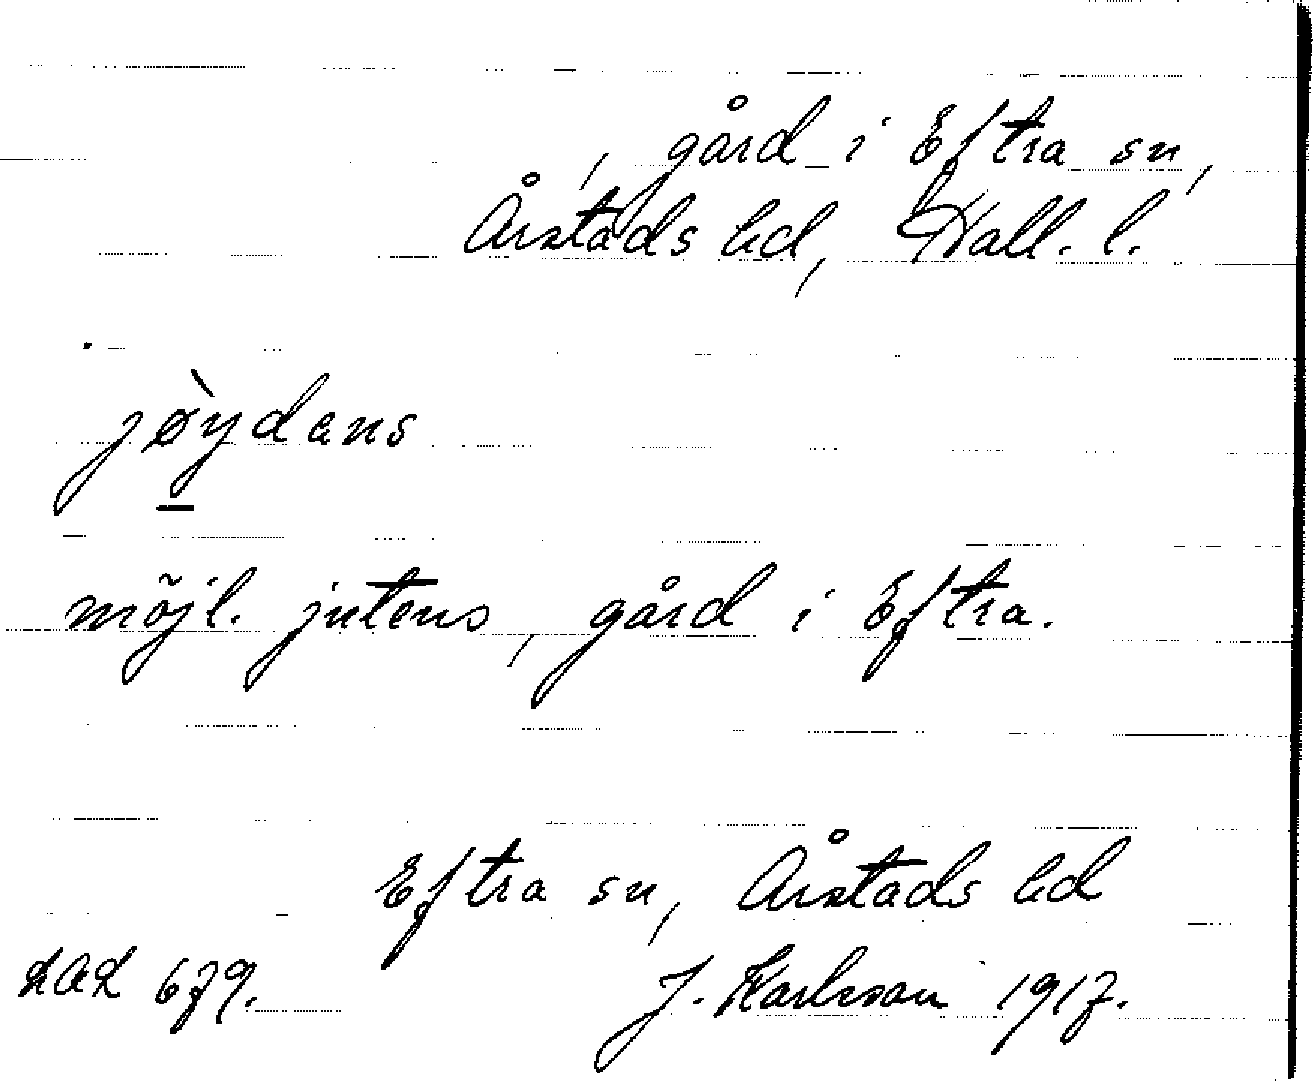 , gård i Eftra sn,
Årstads hd, Hall. l.
jøydans
möjl. jutens, gård i Eftra.
Eftra sn, Årstads hd
LAL 679. J. Karlsson 1917.